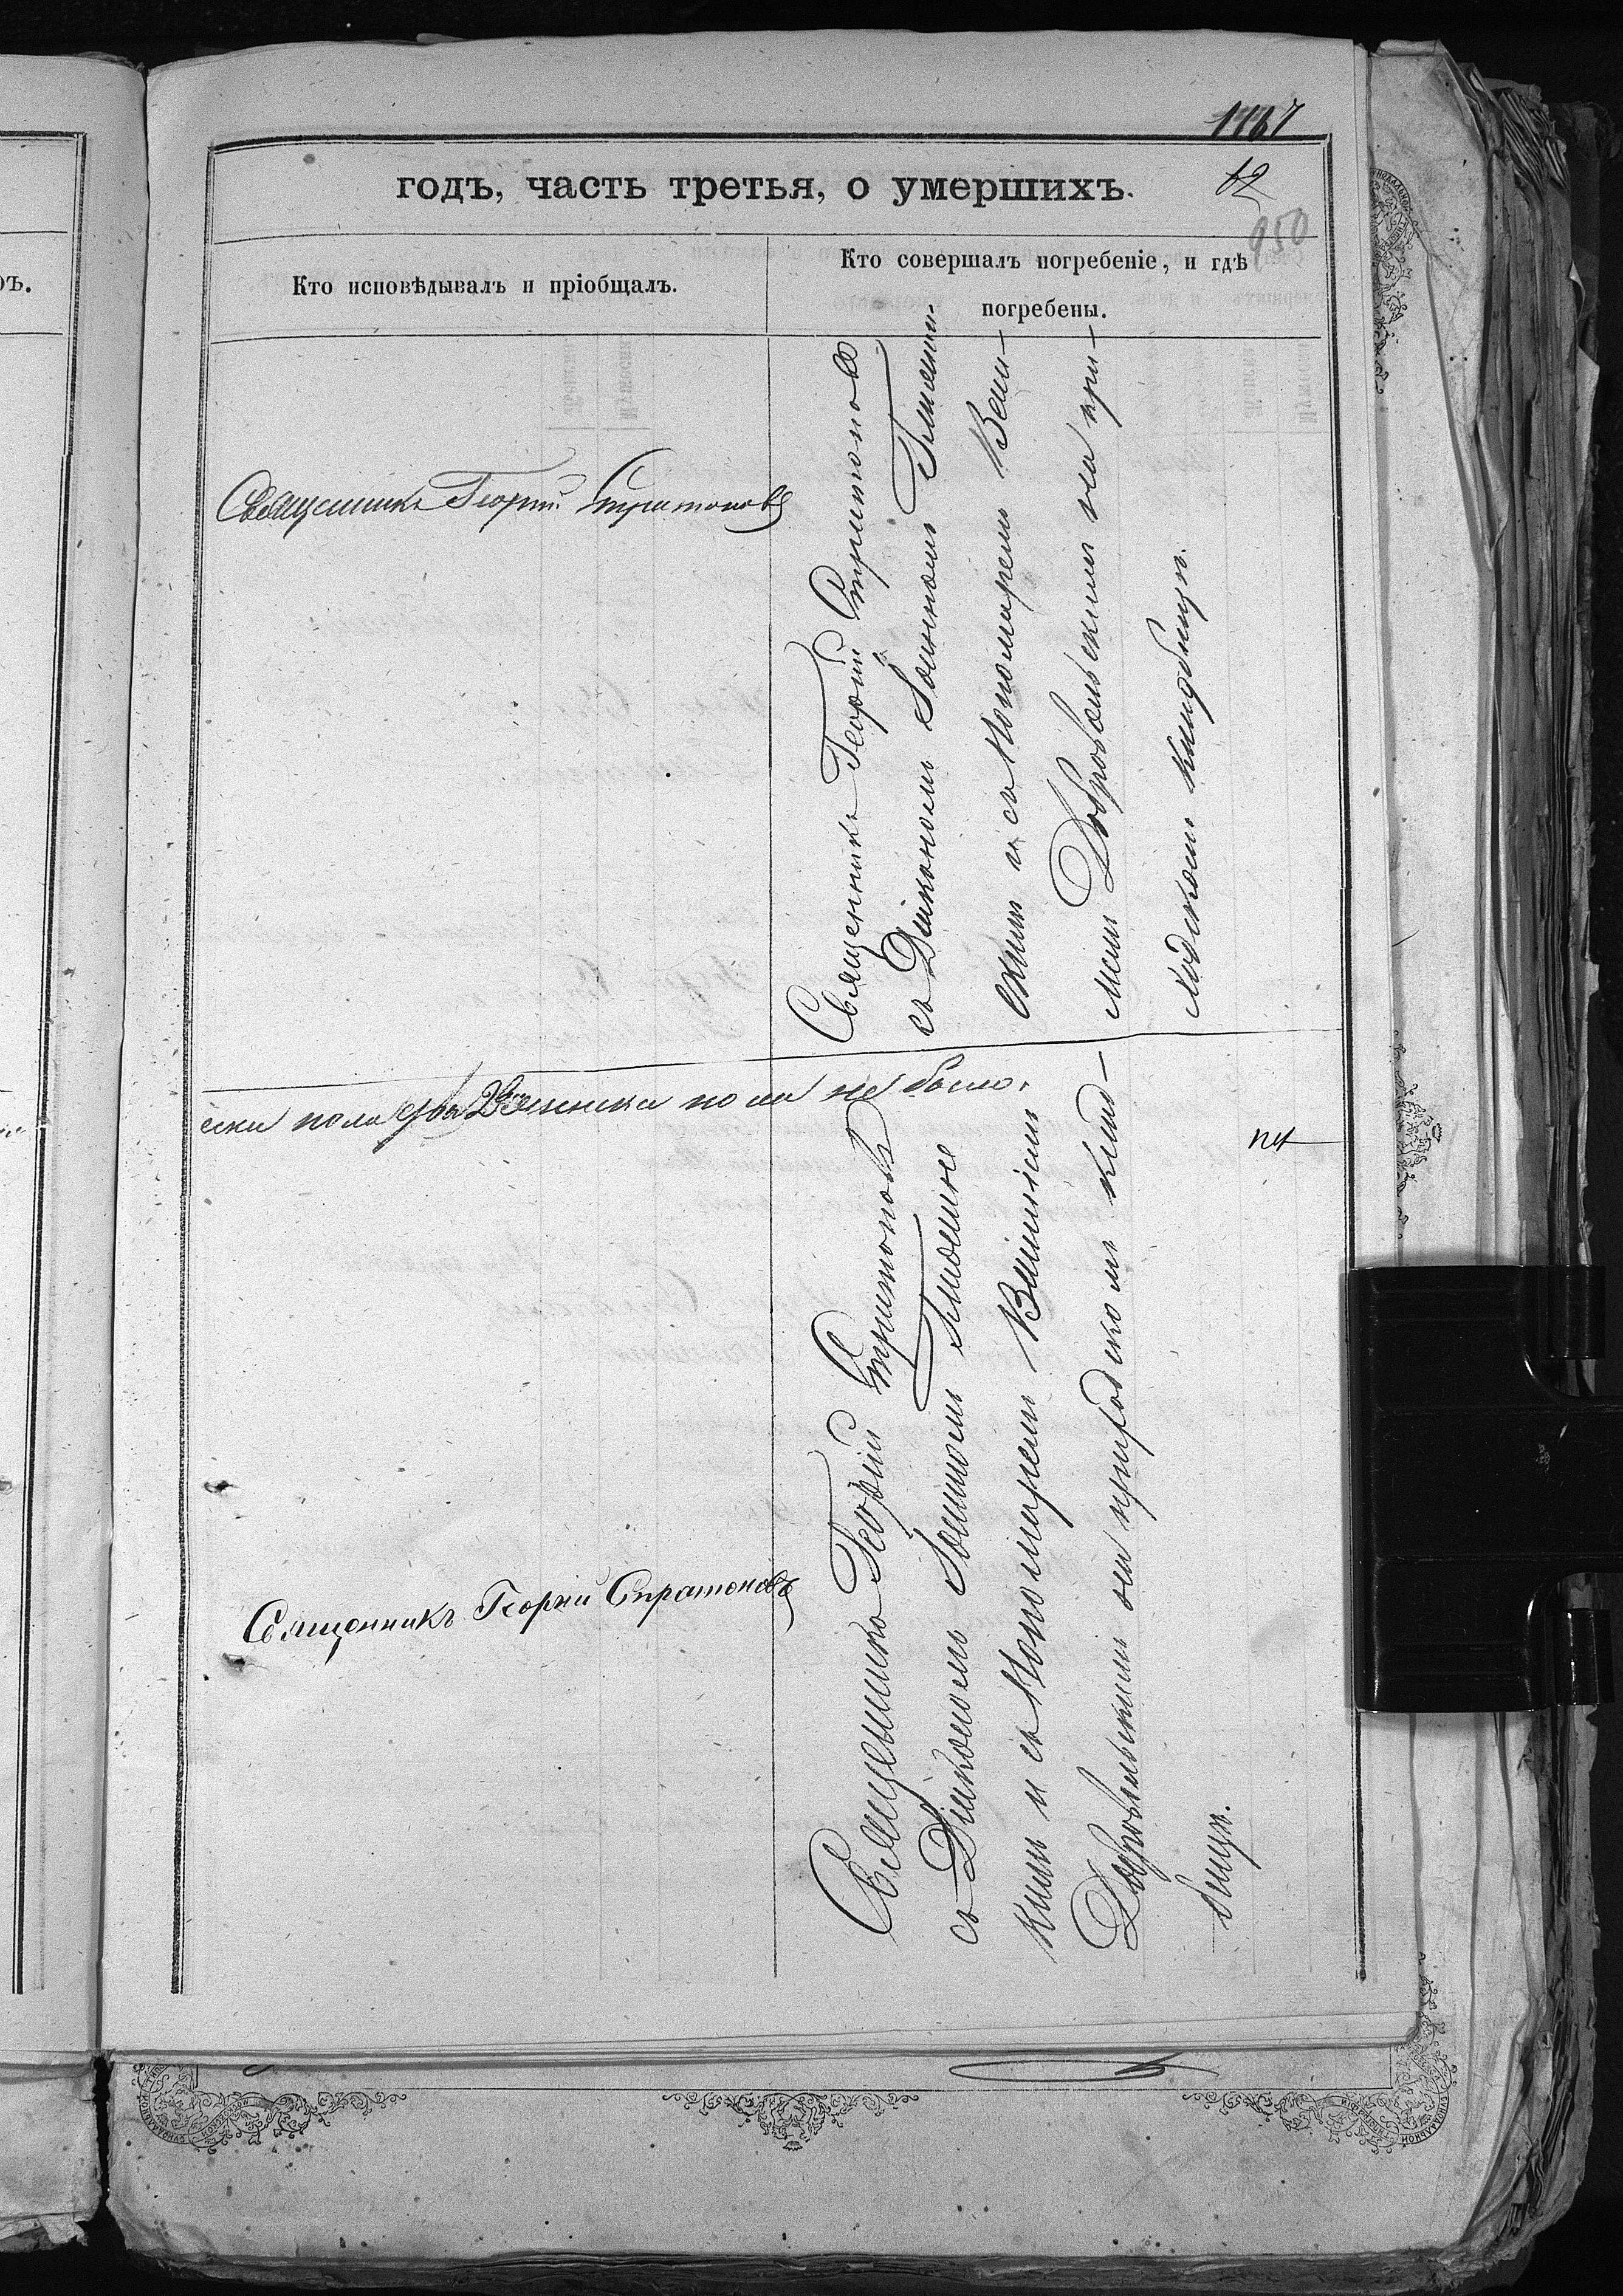 1167
годъ, часть третья, о умершихъ.
12
950
ръ.
Кто исповѣдывалъ и пріобщалъ.
Кто совершалъ погребеніе, и гдѣ
погребены.
Священникъ Георгій Стратоновъ
Священникъ Георгій Стратоновъ
съ Діакономъ Іоанномъ
скимъ и съ Пономаремъ
Добровольскимъ на при-
ходскомъ кладбищѣ.
ска пола два женска пола не было.
Священникъ Георгій Стратоновъ
Священникъ Георгій Стратоновъ
съ Діакономъ Іоанномъ
кимъ и съ Пономаремъ
Добровольскимъ на приходскомъ клад-
бищѣ.